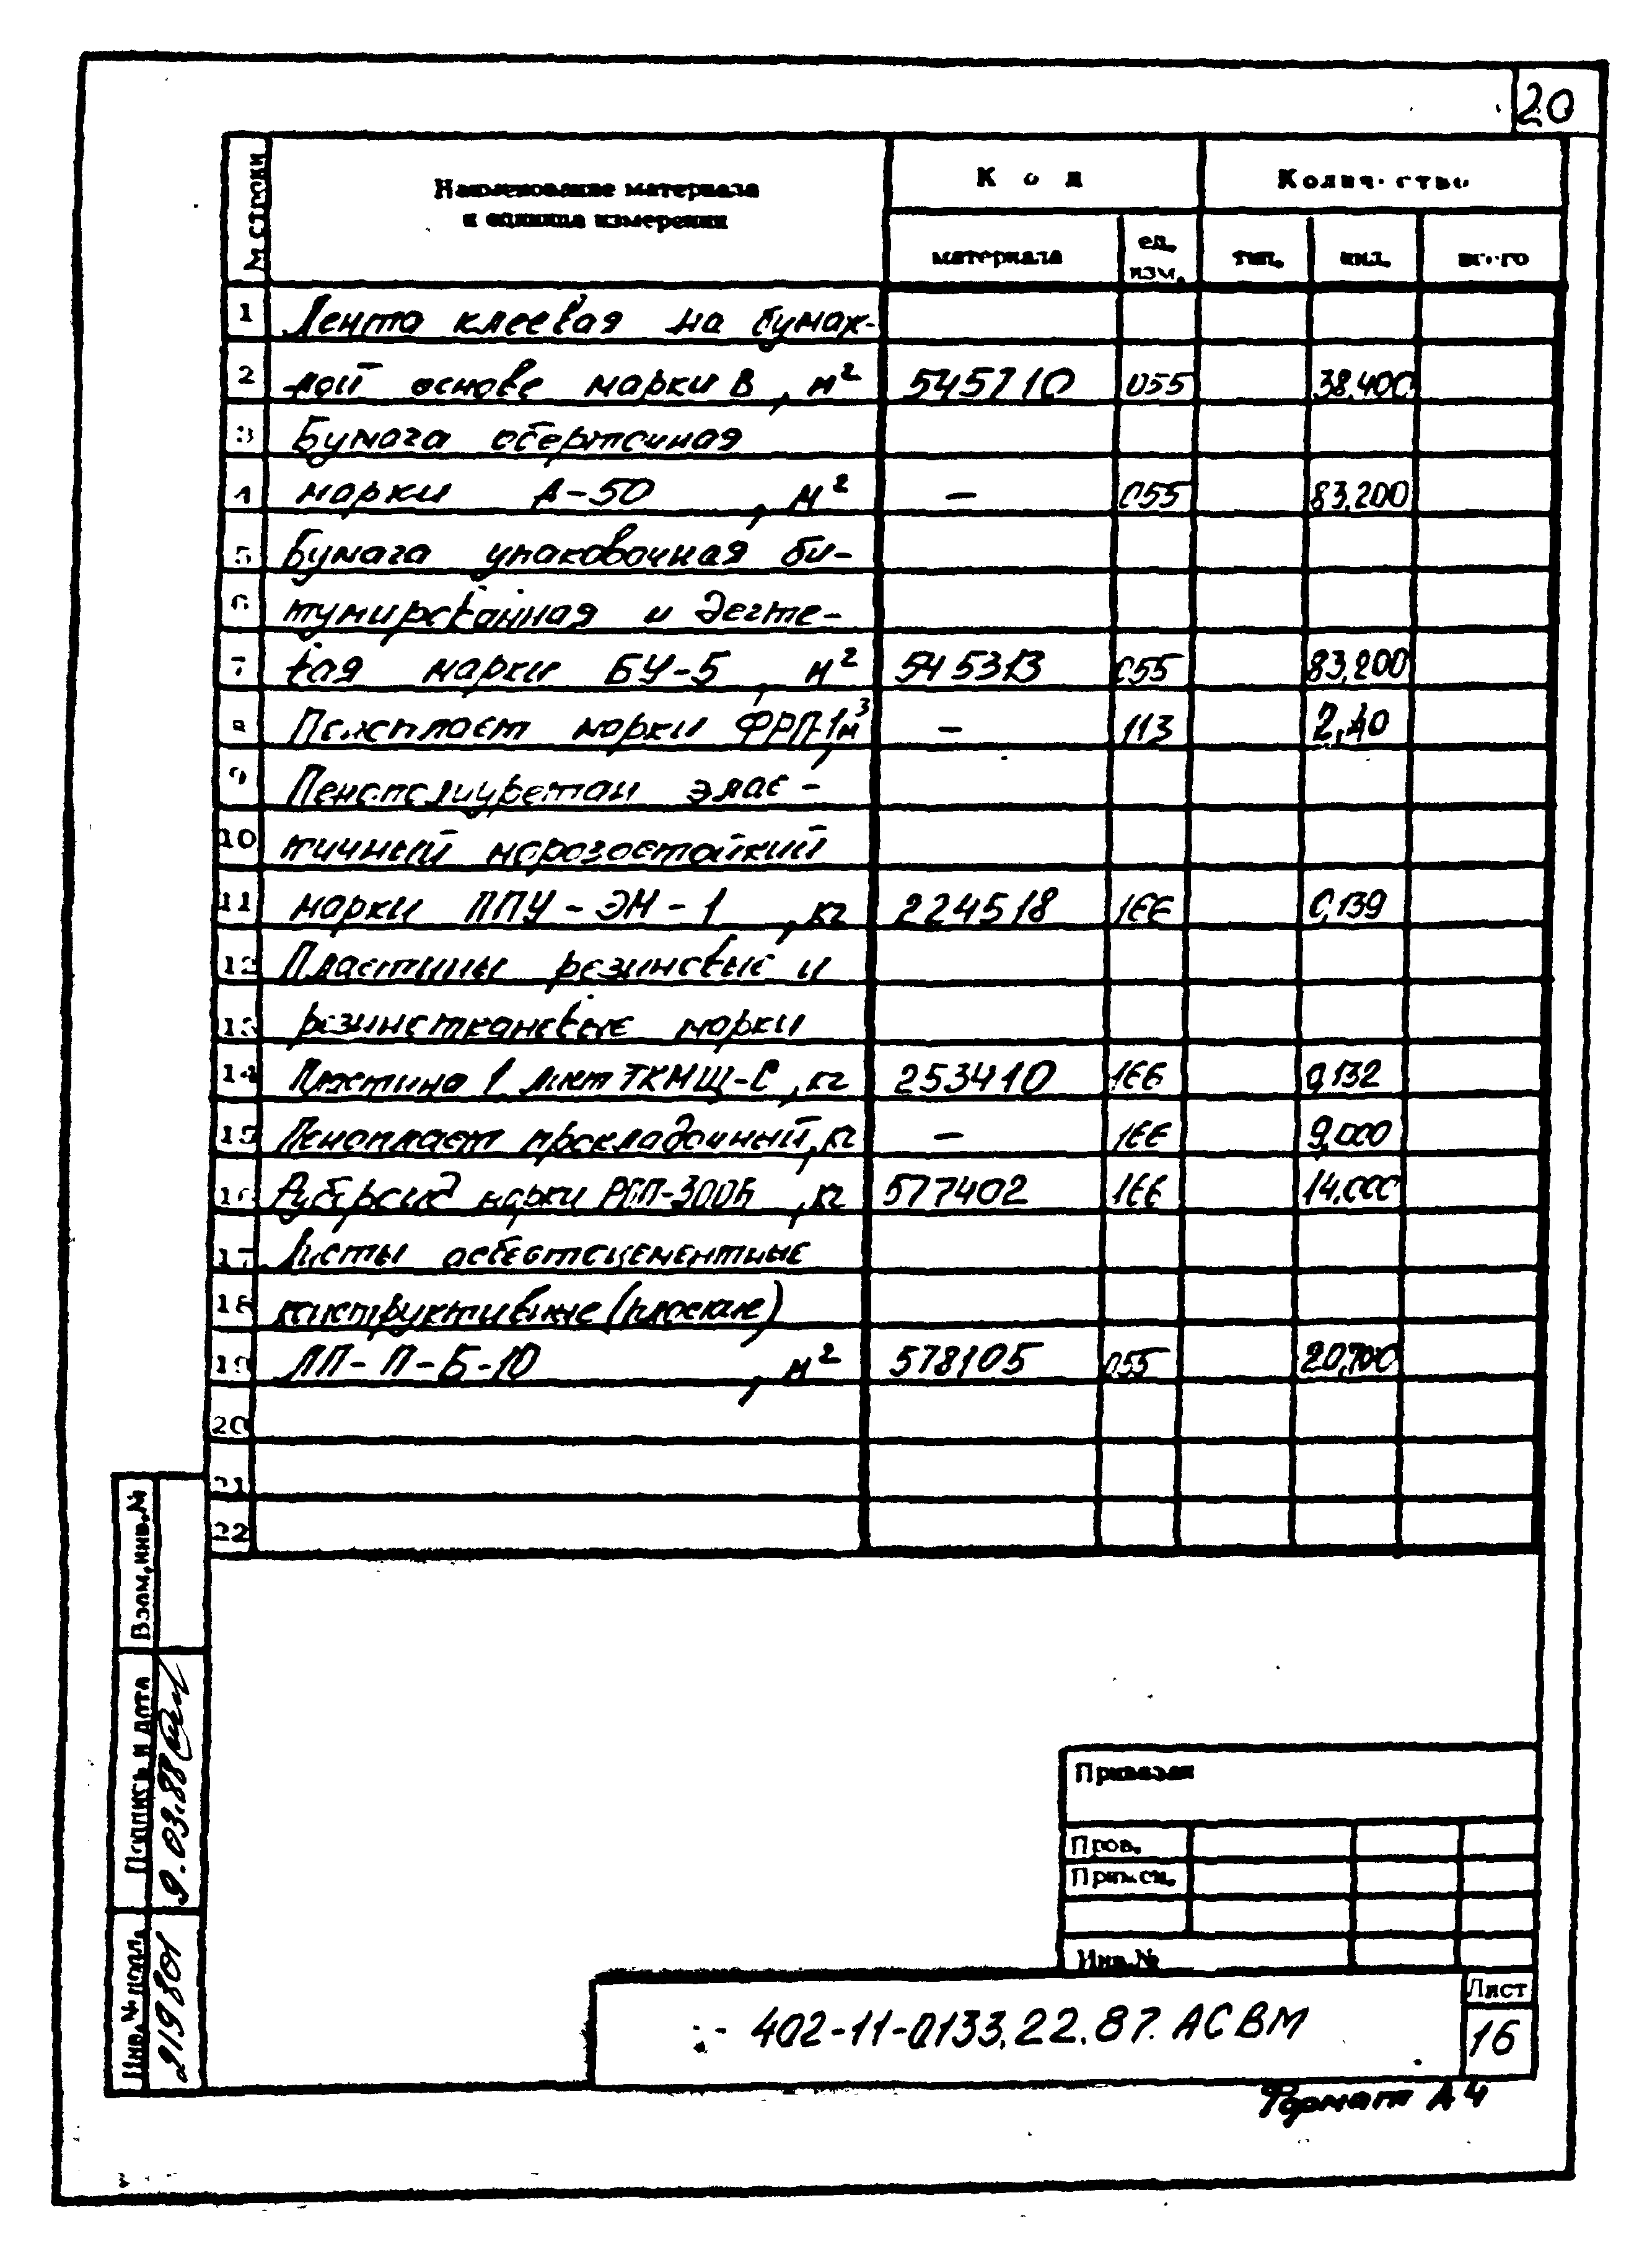 20
№ строки
Наименование материала
и единица измерения
Код
Количество
материала
ед.
изм.
тип.
инд.
всего
1 Лента клеевая на бумаж-
2 ной основе марки В, м² 545710 055 38,400
3 Бумага оберточная
4 марки А-50, м² - 055 83,200
5 Бумага упаковочная би-
6 тумированная и дегте-
7 вая марки БУ-5, м² 545313 055 83,200
8 Пенопласт марки ФРП-1, м³ - 113 2,40
9 Пенополиуретан элас-
10 тичный морозостойкий
11 марки ППУ-ЭМ-1, кг 224518 166 0,139
12 Пластины резиновые и
13 резинотканевые марки
14 Пластина 1 лист ТКМЩ-С, кг 253410 166 0,132
15 Пенопласт прокладочный, кг - 166 9,000
16 Рубероид марки РПП-300Б, кг 577402 166 14,000
17 Листы асбестоцементные
18 конструктивные (плоские)
19 ЛП-П-Б-10, м² 578105 055 20,700
20
21
22
Взам.инв.№
Подпись и дата
9.03.88
Инв.№ подл.
219801
Привязан
Пров.
Инв.№
402-11-0133.22.87.АСВМ
Лист
16
Формат А4